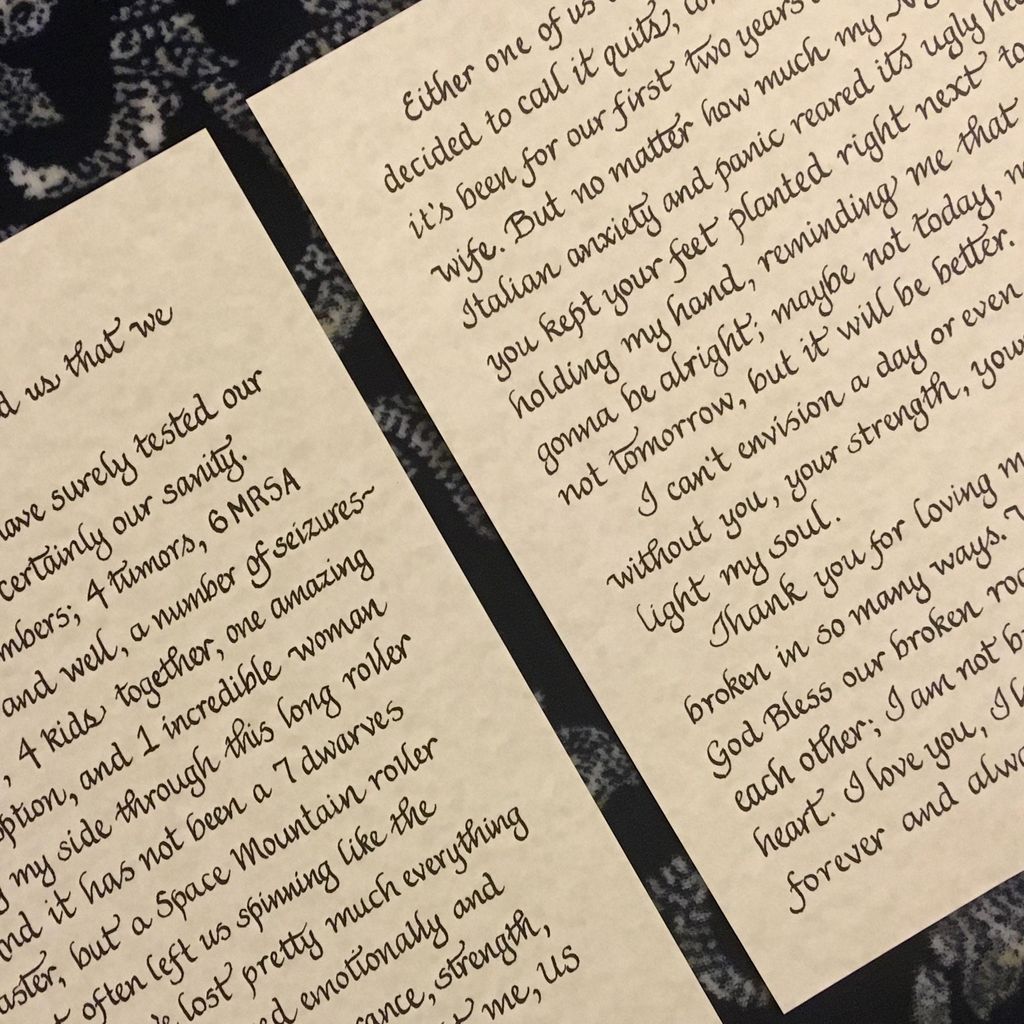 us that we
have surely tested our
certainly our sanity.
4 tumors, 6 MRSA
and well, a number of seizures~
, 4 kids together, one amazing
and 1 incredible woman
my side through this long roller
and it has not been a 7 dwarves
but a Space Mountain roller
often left us spinning like the
lost pretty much everything
emotionally and
strength,
me, us
Either one of us
decided to call it quits,
it's been for our first two years
wife. But no matter how much my
Italian anxiety and panic reared its ugly
you kept your feet planted right next to
holding my hand, reminding me that
gonna be alright; maybe not today,
not tomorrow, but it will be better.
I can't envision a day or even
without you, your strength,
light my soul.
Thank you for loving
broken in so many ways.
God Bless our broken
each other; I am not
heart. I love you, I
forever and